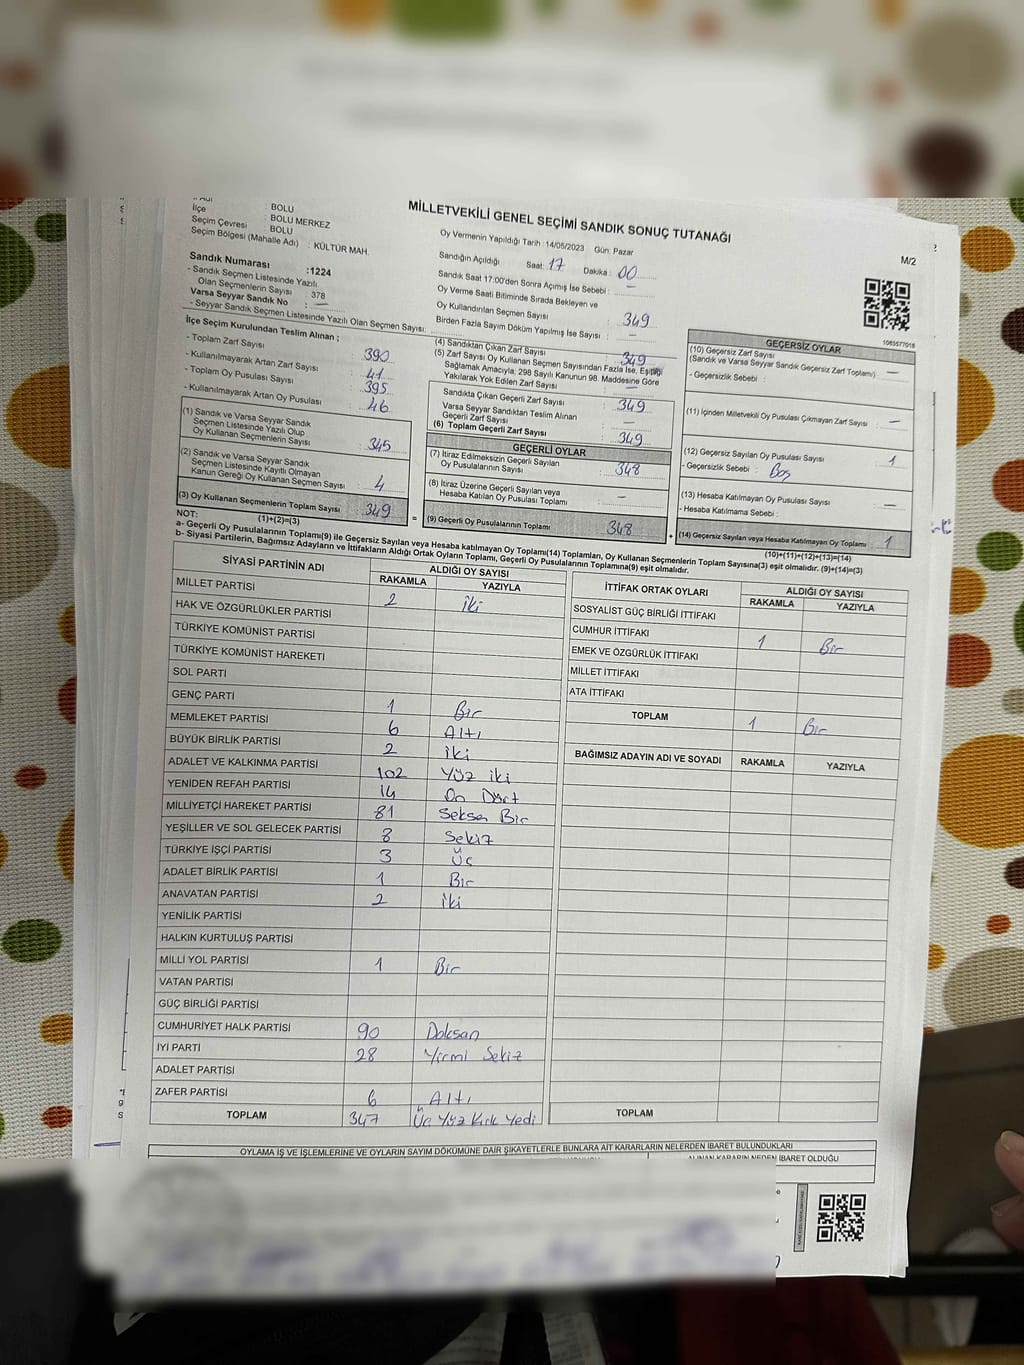 İlçe : BOLU
BOLU MERKEZ
Seçim Çevresi : BOLU
Seçim Bölgesi (Mahalle Adı) : KÜLTÜR MAH.
MİLLETVEKİLİ GENEL SEÇİMİ SANDIK SONUÇ TUTANAĞI
M/2
Oy Vermenin Yapıldığı Tarih : 14/05/2023 Gün: Pazar
Sandığın Açıldığı Saat: 17 Dakika : 00
Sandık Saat 17:00'den Sonra Açımış İse Sebebi : —
Oy Verme Saati Bitiminde Sırada Bekleyen ve
Oy Kullandırılan Seçmen Sayısı : 349
Birden Fazla Sayım Döküm Yapılmış İse Sayısı : —
Sandık Numarası :1224
- Sandık Seçmen Listesinde Yazılı
Olan Seçmenlerin Sayısı 378
Varsa Seyyar Sandık No : —
- Seyyar Sandık Seçmen Listesinde Yazılı Olan Seçmen Sayısı:
1083577018
İlçe Seçim Kurulundan Teslim Alınan ;
- Toplam Zarf Sayısı : 390
- Kullanılmayarak Artan Zarf Sayısı : 41
- Toplam Oy Pusulası Sayısı : 395
- Kullanılmayarak Artan Oy Pusulası : 46
(1) Sandık ve Varsa Seyyar Sandık
Seçmen Listesinde Yazılı Olup
Oy Kullanan Seçmenlerin Sayısı : 345
(2) Sandık ve Varsa Seyyar Sandık
Seçmen Listesinde Kayıtlı Olmayan
Kanun Gereği Oy Kullanan Seçmen Sayısı : 4
(3) Oy Kullanan Seçmenlerin Toplam Sayısı : 349
(1)+(2)=(3)
(4) Sandıktan Çıkan Zarf Sayısı : 349
(5) Zarf Sayısı Oy Kullanan Seçmen Sayısından Fazla İse, Eşitliği
Sağlamak Amacıyla; 298 Sayılı Kanunun 98. Maddesine Göre
Yakılarak Yok Edilen Zarf Sayısı : —
Sandıkta Çıkan Geçerli Zarf Sayısı : 349
Varsa Seyyar Sandıktan Teslim Alınan
Geçerli Zarf Sayısı : —
(6) Toplam Geçerli Zarf Sayısı : 349
GEÇERLİ OYLAR
(7) İtiraz Edilmeksizin Geçerli Sayılan
Oy Pusulalarının Sayısı : 348
(8) İtiraz Üzerine Geçerli Sayılan veya
Hesaba Katılan Oy Pusulası Toplamı : —
= (9) Geçerli Oy Pusulalarının Toplamı 348
GEÇERSİZ OYLAR
(10) Geçersiz Zarf Sayısı
(Sandık ve Varsa Seyyar Sandık Geçersiz Zarf Toplamı) : —
- Geçersizlik Sebebi :
(11) İçinden Milletvekili Oy Pusulası Çıkmayan Zarf Sayısı : —
(12) Geçersiz Sayılan Oy Pusulası Sayısı : 1
- Geçersizlik Sebebi : Boş
(13) Hesaba Katılmayan Oy Pusulası Sayısı : —
- Hesaba Katılmama Sebebi :
+ (14) Geçersiz Sayılan veya Hesaba Katılmayan Oy Toplamı : 1
(10)+(11)+(12)+(13)=(14)
NOT:
a- Geçerli Oy Pusulalarının Toplamı(9) ile Geçersiz Sayılan veya Hesaba katılmayan Oy Toplamı(14) Toplamları, Oy Kullanan Seçmenlerin Toplam Sayısına(3) eşit olmalıdır. (9)+(14)=(3)
b- Siyasi Partilerin, Bağımsız Adayların ve İttifakların Aldığı Ortak Oyların Toplamı, Geçerli Oy Pusulalarının Toplamına(9) eşit olmalıdır.
SİYASİ PARTİNİN ADI ALDIĞI OY SAYISI
RAKAMLA YAZIYLA
MİLLET PARTİSİ 2 iki
HAK VE ÖZGÜRLÜKLER PARTİSİ
TÜRKİYE KOMÜNİST PARTİSİ
TÜRKİYE KOMÜNİST HAREKETİ
SOL PARTİ
GENÇ PARTİ 1 Bir
MEMLEKET PARTİSİ 6 Altı
BÜYÜK BİRLİK PARTİSİ 2 iki
ADALET VE KALKINMA PARTİSİ 102 Yüz iki
YENİDEN REFAH PARTİSİ 14 On Dört
MİLLİYETÇİ HAREKET PARTİSİ 81 Seksen Bir
YEŞİLLER VE SOL GELECEK PARTİSİ 8 Sekiz
TÜRKİYE İŞÇİ PARTİSİ 3 Üç
ADALET BİRLİK PARTİSİ 1 Bir
ANAVATAN PARTİSİ 2 iki
YENİLİK PARTİSİ
HALKIN KURTULUŞ PARTİSİ
MİLLİ YOL PARTİSİ 1 Bir
VATAN PARTİSİ
GÜÇ BİRLİĞİ PARTİSİ
CUMHURİYET HALK PARTİSİ 90 Doksan
İYİ PARTİ 28 Yirmi Sekiz
ADALET PARTİSİ
ZAFER PARTİSİ 6 Altı
TOPLAM 347 Üç Yüz Kırk Yedi
İTTİFAK ORTAK OYLARI ALDIĞI OY SAYISI
RAKAMLA YAZIYLA
SOSYALİST GÜÇ BİRLİĞİ İTTİFAKI
CUMHUR İTTİFAKI 1 Bir
EMEK VE ÖZGÜRLÜK İTTİFAKI
MİLLET İTTİFAKI
ATA İTTİFAKI
TOPLAM 1 Bir
BAĞIMSIZ ADAYIN ADI VE SOYADI RAKAMLA YAZIYLA
TOPLAM
OYLAMA İŞ VE İŞLEMLERİNE VE OYLARIN SAYIM DÖKÜMÜNE DAİR ŞİKAYETLERLE BUNLARA AİT KARARLARIN NELERDEN İBARET BULUNDUKLARI
ALINAN KARARIN NEDEN İBARET OLDUĞU